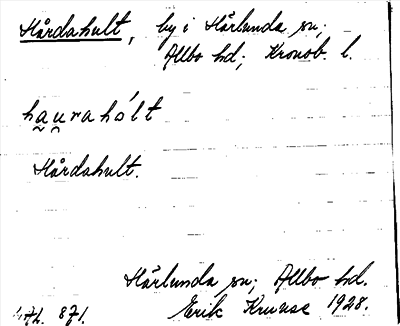 Hårdahult, by i Härlunda sn;
Allbo hd; Kronob. l.
hau̯rahólt
Hårdahult.
Härlunda sn; Allbo hd.
871. Erik Kruuse 1928.